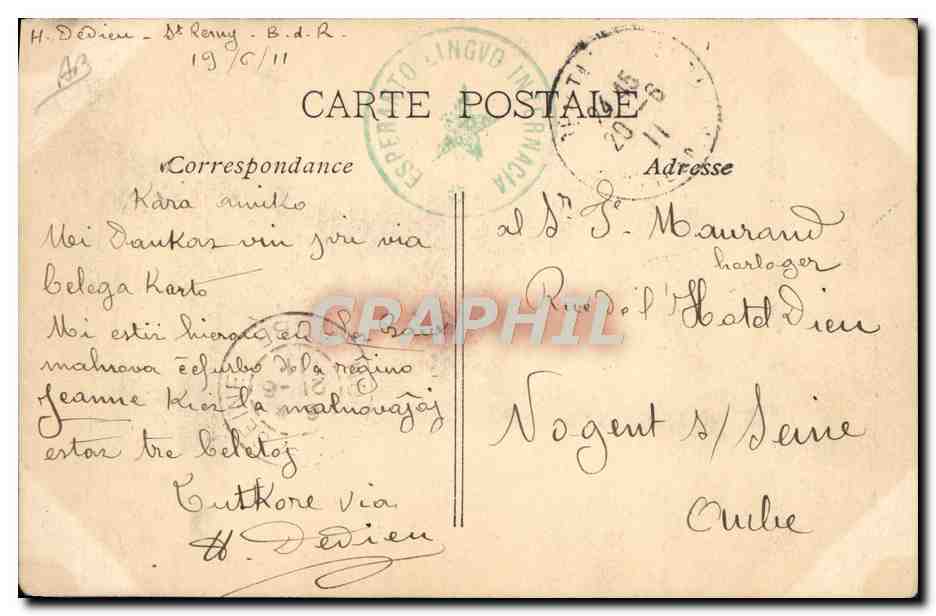 H. Dédieu - St Remy - B. d. R.
19/6/11
AB
ESPERANTO LINGVO INTERNACIA
CARTE POSTALE
15
20 -6
11
Correspondance
Adresse
Kara amiko
Mi Dankas vin pri via
belega Karto
Mi estis hieraŭ en Les Baux
malnova ĉefurbo de la reĝino
Jeanne Kies la malnovaĵoj
estas tre beletaj
Tutkore via
H. Dédieu
al Sn P. Maurand
horloger
Rue de l'Hotel Dieu
Nogent s/ Seine
Aube
CPAPHIL
21 -6